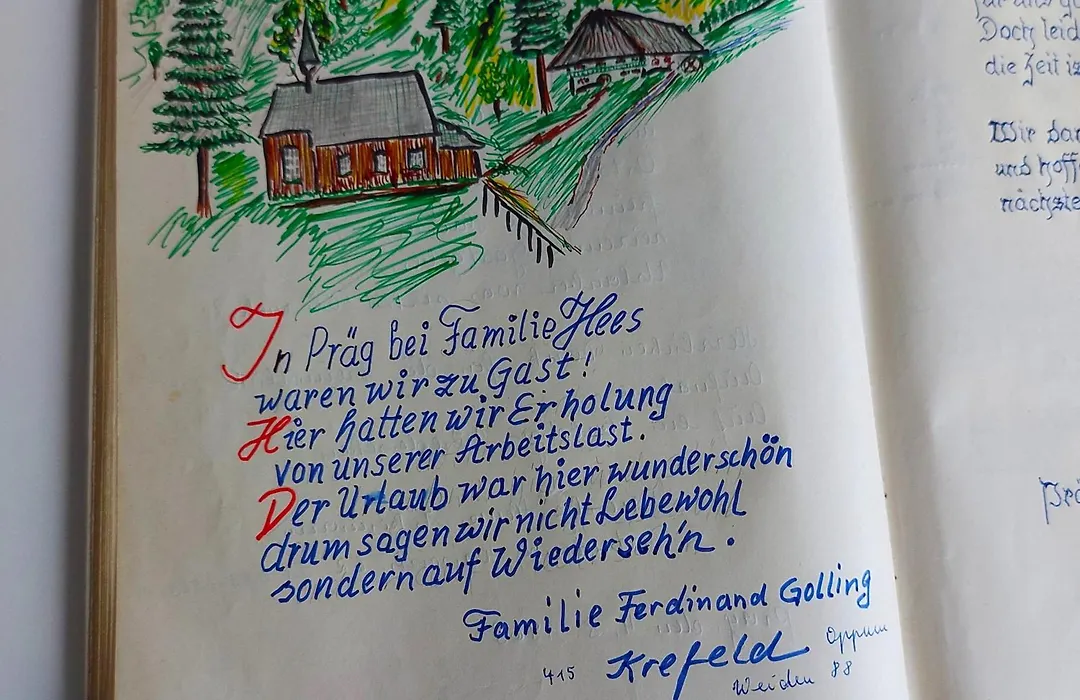 In Präg bei Familie Hees
waren wir zu Gast!
Hier hatten wir Erholung
von unserer Arbeitslast.
Der Urlaub war hier wunderschön
drum sagen wir nicht Lebewohl
sondern auf Wiederseh'n.
Familie Ferdinand Golling
415 Krefeld Oppum
Weiden 88
Doch leid
die Zeit is
Wir dan
und hoff
nächste